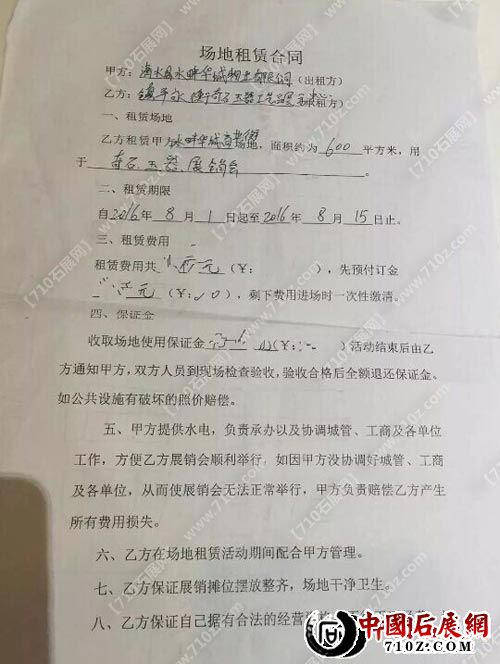 场地租赁合同
甲方:水畔华城物业有限公司(出租方)
乙方:镇平 奇石玉器工艺品展 (承租方)
一、租赁场地
乙方租赁甲方水畔华城 场地,面积约为 600 平方米,用
于 奇石玉器展销会 。
二、租赁期限
自2016年 8 月 1 日起至 2016年 8 月 15日止。
三、租赁费用
租赁费用共 元(¥: ),先预付订金
元(¥: 0),剩下费用进场时一次性缴清。
四、保证金
收取场地使用保证金 (¥: )活动结束后由乙
方通知甲方,双方人员到现场检查验收,验收合格后全额退还保证金。
如公共设施有破坏的照价赔偿。
五、甲方提供水电,负责承办以及协调城管、工商及各单位
工作,方便乙方展销会顺利举行,如因甲方没协调好城管、工商
及各单位,从而使展销会无法正常举行,甲方负责赔偿乙方产生
所有费用损失。
六、乙方在场地租赁活动期间配合甲方管理。
七、乙方保证展销摊位摆放整齐,场地干净卫生。
八、乙方保证自己据有合法的经营
中國石展网
710Z.COM
【710石展网】
www.710z.com